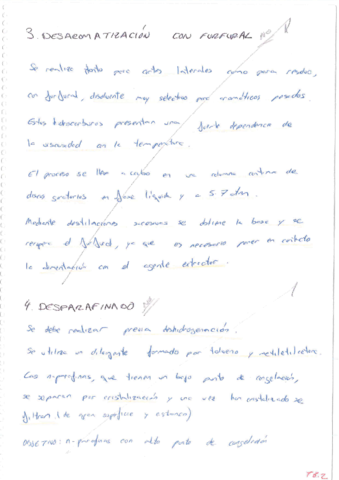 3. DESAROMATIZACIÓN CON FURFURAL
Se realiza tanto para cortes laterales como para residuo,
con furfural, disolvente muy selectivo por aromáticos pesados.
Estos hidrocarburos presentan una fuerte dependencia de
la viscosidad con la temperatura.
El proceso se lleva a cabo en un columna continua de
discos giratorios en fase líquida y a 5-7 atm.
Mediante destilaciones sucesivas se obtiene la base y se
recupera el furfural, ya que es necesario poner en contacto
la alimentación con el agente extractor.
4. DESPARAFINADO
Se debe realizar previa deshidrogenación.
Se utiliza un diluyente formado por tolueno y metiletilcetona.
Las n-parafinas, que tienen un bajo punto de congelación,
se separan por cristalización y una vez han cristalizado se
filtran (de gran superficie y
OBJETIVO: n-parafinas con alto punto de congelación